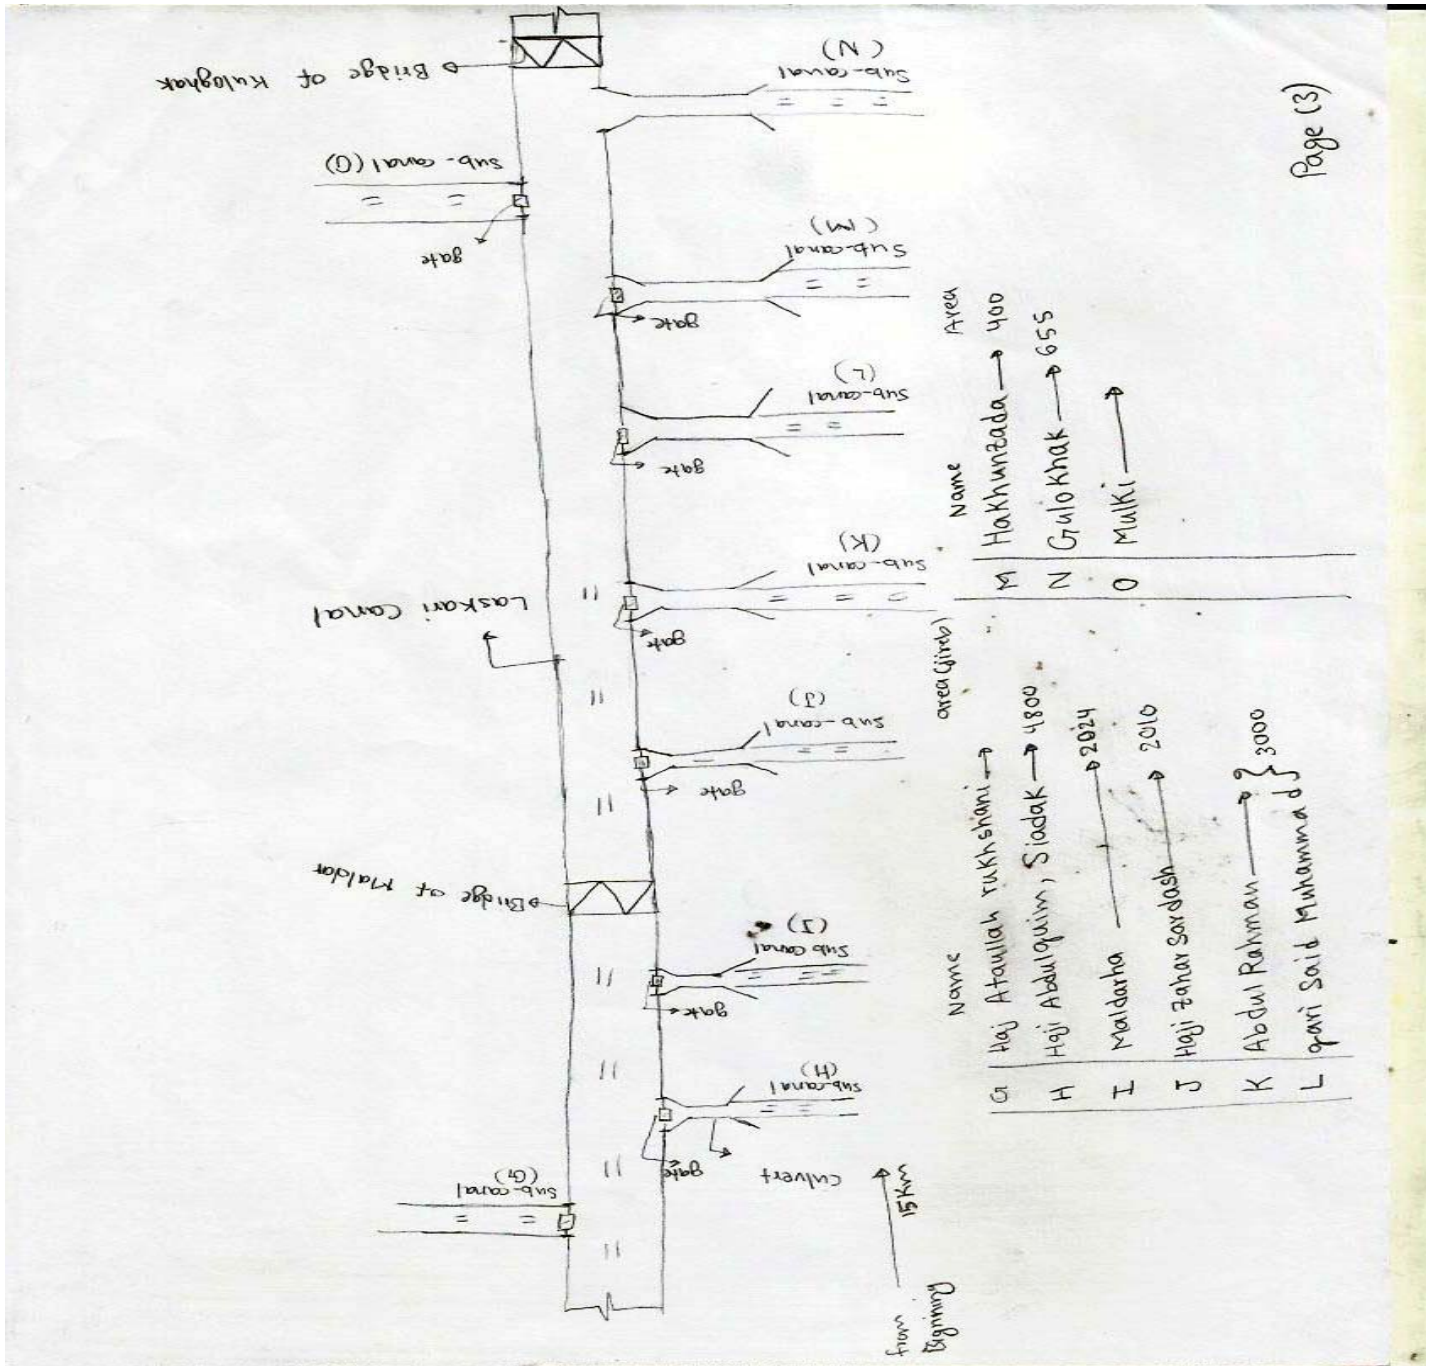 Page (3)
Bridge of Kuloghak
Sub-canal
(N)
Sub-canal (O)
gate
Sub-canal
(M)
gate
Sub-canal
(L)
gate
Sub-canal
(K)
gate
Laskari Canal
Sub-canal
(J)
gate
Bridge of Maldar
Sub Canal
(I)
gate
Sub-canal
(H)
gate
culvert
Sub-canal
(G)
15Km
from
Biginning
Name area (jireb)
G Haj Ataullah rukhshani
H Haji Abdulquim, Siadak 4800
I Maldarha 2024
J Haji Zahar Sardash 2010
K Abdul Rahman
L qari Said Muhammad } 3000
Name Area
M Hakhunzada 400
N Gulokhak 655
O Mulki